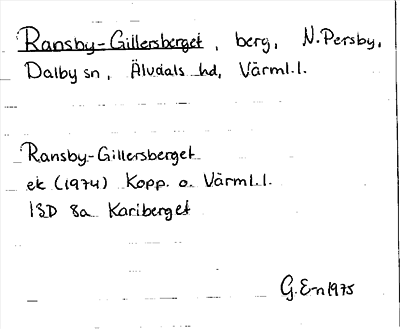 Ransby-Gillersberget, berg, N.Persby,
Dalby sn, Älvdals hd, Värml.l.
Ransby-Gillersberget
ek (1974) Kopp. o. Värml.l.
13D 8a Kariberget
G.E-n 1975